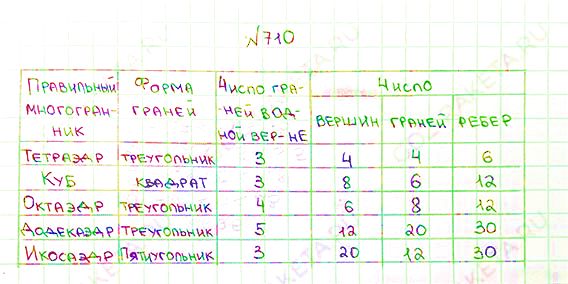 №710
Правильный многогранник Форма граней Число граней в одной вер-не Число
вершин граней ребер
Тетраэдр треугольник 3 4 4 6
Куб квадрат 3 8 6 12
Октаэдр треугольник 4 6 8 12
Додекаэдр треугольник 5 12 20 30
Икосаэдр пятиугольник 3 20 12 30